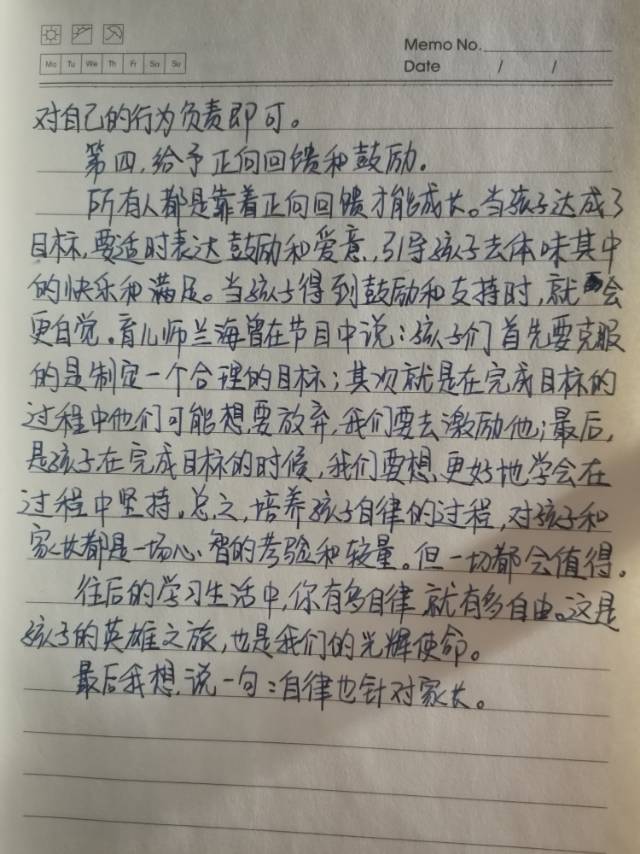 Memo No.
Mo Tu We Th Fr Sa Su
Date / /
对自己的行为负责即可。
第四,给予正向回馈和鼓励。
所有人都是靠着正向回馈才能成长。当孩子达成了
目标,要适时表达鼓励和爱意,引导孩子去体味其中
的快乐和满足。当孩子得到鼓励和支持时,就会
更自觉。育儿师兰海曾在节目中说:孩子们首先要克服
的是制定一个合理的目标;其次就是在完成目标的
过程中他们可能想要放弃,我们要去激励他;最后,
是孩子在完成目标的时候,我们要想更好地学会在
过程中坚持。总之,培养孩子自律的过程,对孩子和
家长都是一场心智的考验和较量。但一切都会值得。
往后的学习生活中,你有多自律就有多自由。这是
孩子的英雄之旅,也是我们的光辉使命。
最后我想说一句:自律也针对家长。